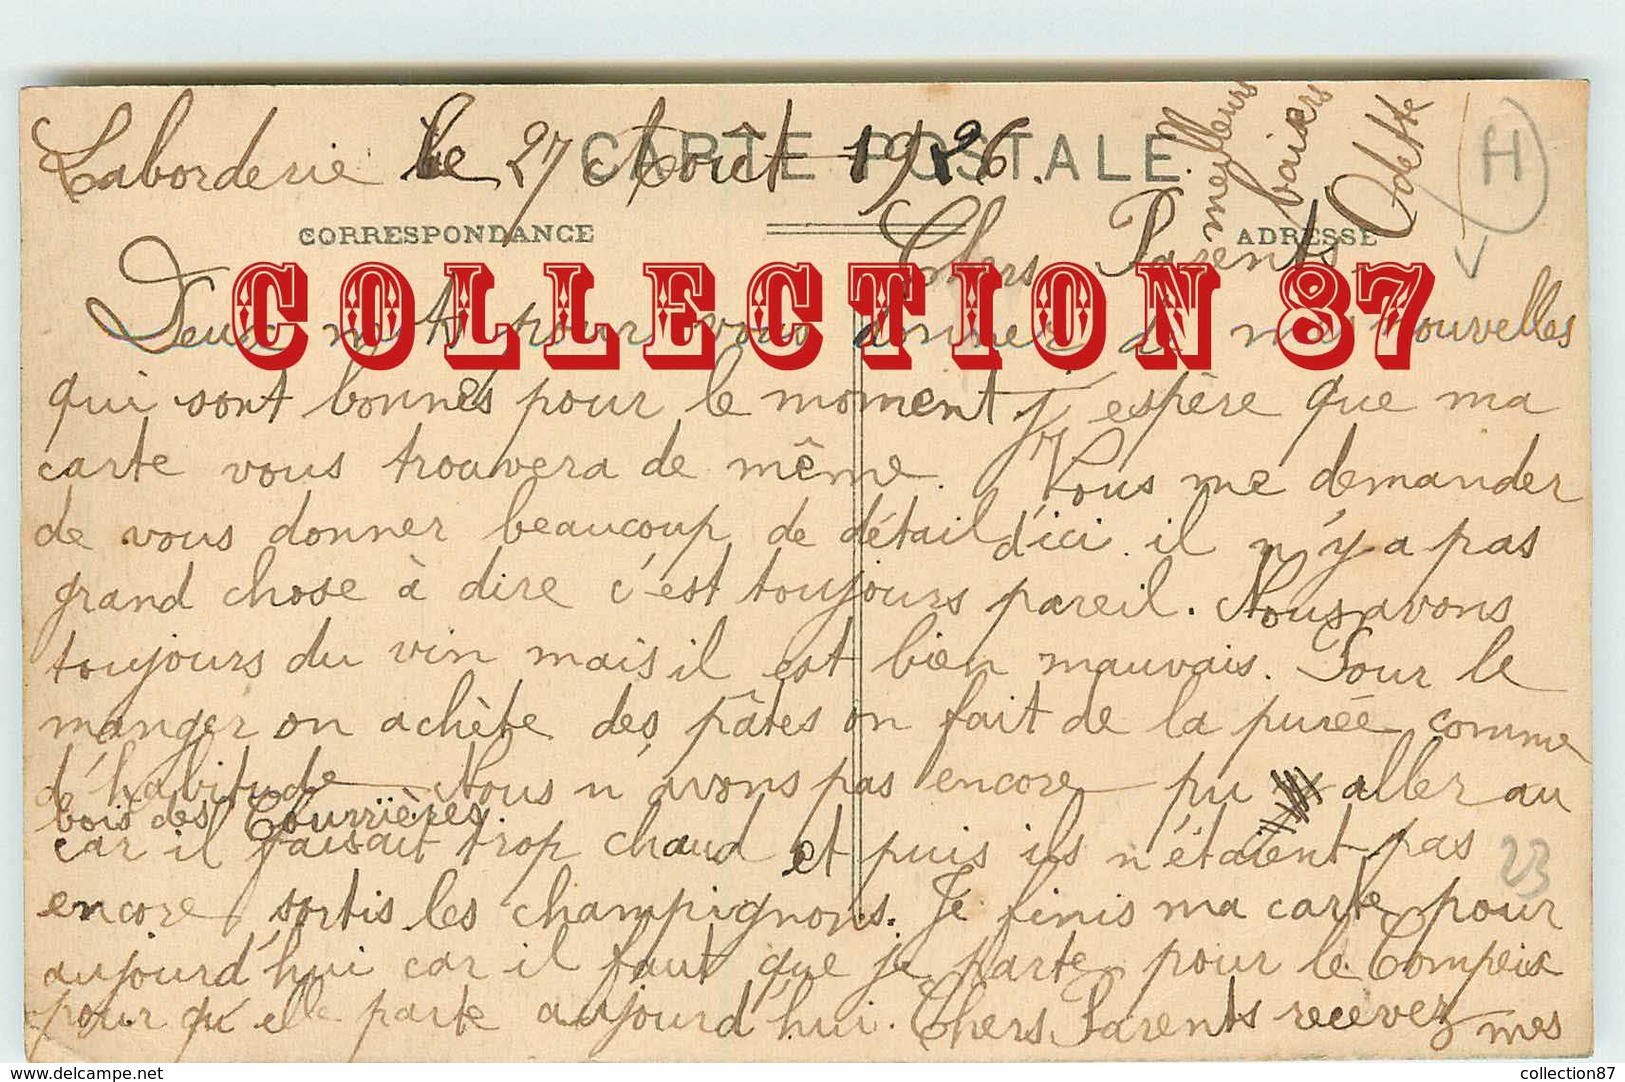 CARTE POSTALE
Laborderie le 27 Août 1926.
CORRESPONDANCE
ADRESSE
Chers Parents
COLLECTION 87
Deux mots pour vous donner de mes nouvelles
qui sont bonnes pour le moment j'espère que ma
carte vous trouvera de même. Vous me demander
de vous donner beaucoup de détail d'ici. il n'y a pas
grand chose à dire c'est toujours pareil. Nous avons
toujours du vin mais il est bien mauvais. Pour le
manger on achète des pâtes on fait de la purée comme
d'habitude Nous n'avons pas encore pu aller au
bois des Courrières
car il faisait trop chaud et puis ils n'étaient pas
encore sortis les champignons. Je finis ma carte pour
aujourd'hui car il faut que je parte pour le Compeix
pour qu'elle parte aujourd'hui. Chers Parents recevez mes
meilleurs
baisers
Odette
H
23
delcampe.net
collection87